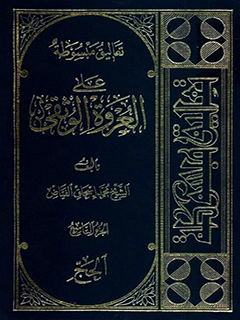 تعاليق مبسوطة
على
العروة الوثقى
تأليف
الشيخ محمد إسحاق الفياض
الجزء التاسع
الحج